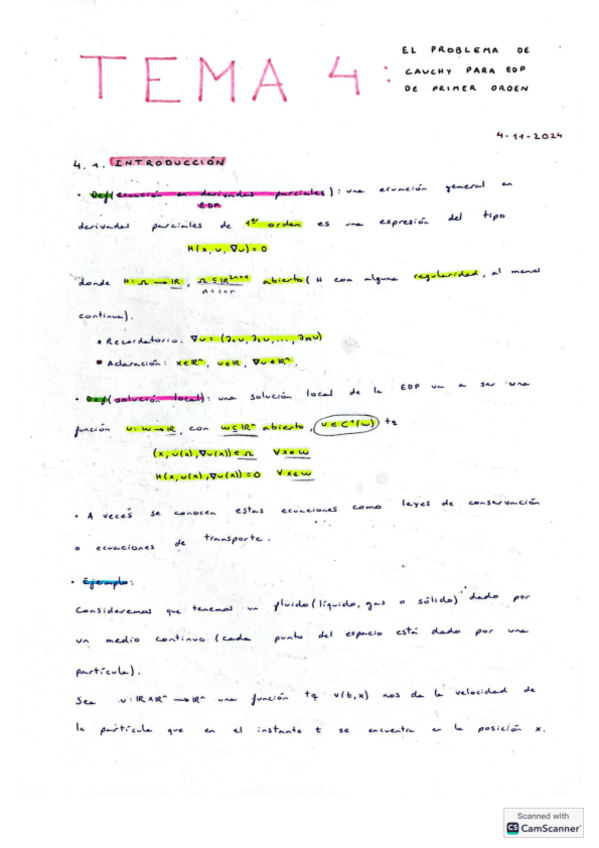 TEMA 4:
EL PROBLEMA DE
CAUCHY PARA EDP
DE PRIMER ORDEN
4-11-2024
4.1. INTRODUCCIÓN
· Def(ecuación en derivadas parciales): una ecuación general en
EDP
derivadas parciales de 1er orden es una expresión del tipo
H(x, u, ∇u) = 0
donde H: Ω → IR, Ω ⊆ IR²ⁿ⁺¹ abierto (H con alguna regularidad, al menos
n+1+n
continua).
* Recordatorio: ∇u = (∂₁u, ∂₂u, ..., ∂ₙu)
* Aclaración: x ∈ IRⁿ, u ∈ IR, ∇u ∈ IRⁿ.
· Def(solución local): una solución local de la EDP va a ser una
función u: ω → IR, con ω ⊆ IRⁿ abierto, u ∈ C¹(ω) tq
(x, u(x), ∇u(x)) ∈ Ω ∀x ∈ ω
H(x, u(x), ∇u(x)) = 0 ∀x ∈ ω
· A veces se conocen estas ecuaciones como leyes de conservación
o ecuaciones de transporte.
· Ejemplo:
Consideremos que tenemos un fluido (líquido, gas o sólido) dado por
un medio continuo (cada punto del espacio está dado por una
partícula).
Sea v: IR x IRⁿ → IRⁿ una función tq v(t,x) nos da la velocidad de
la partícula que en el instante t se encuentra en la posición x.
Scanned with
CS CamScanner